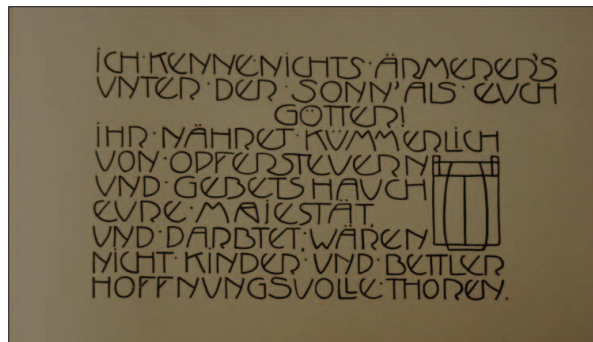 ICH·KENNE·NICHTS·ÄRMERER'S
UNTER·DER·SONN'ALS·EUCH
GÖTTER!
IHR·NÄHRET·KÜMMERLICH
VON·OPFERSTEUERN
UND·GEBETSHAUCH
EURE·MAJESTÄT
UND·DARBTET, WÄREN
NICHT·KINDER·UND·BETTLER
HOFFNUNGSVOLLE·THOREN.